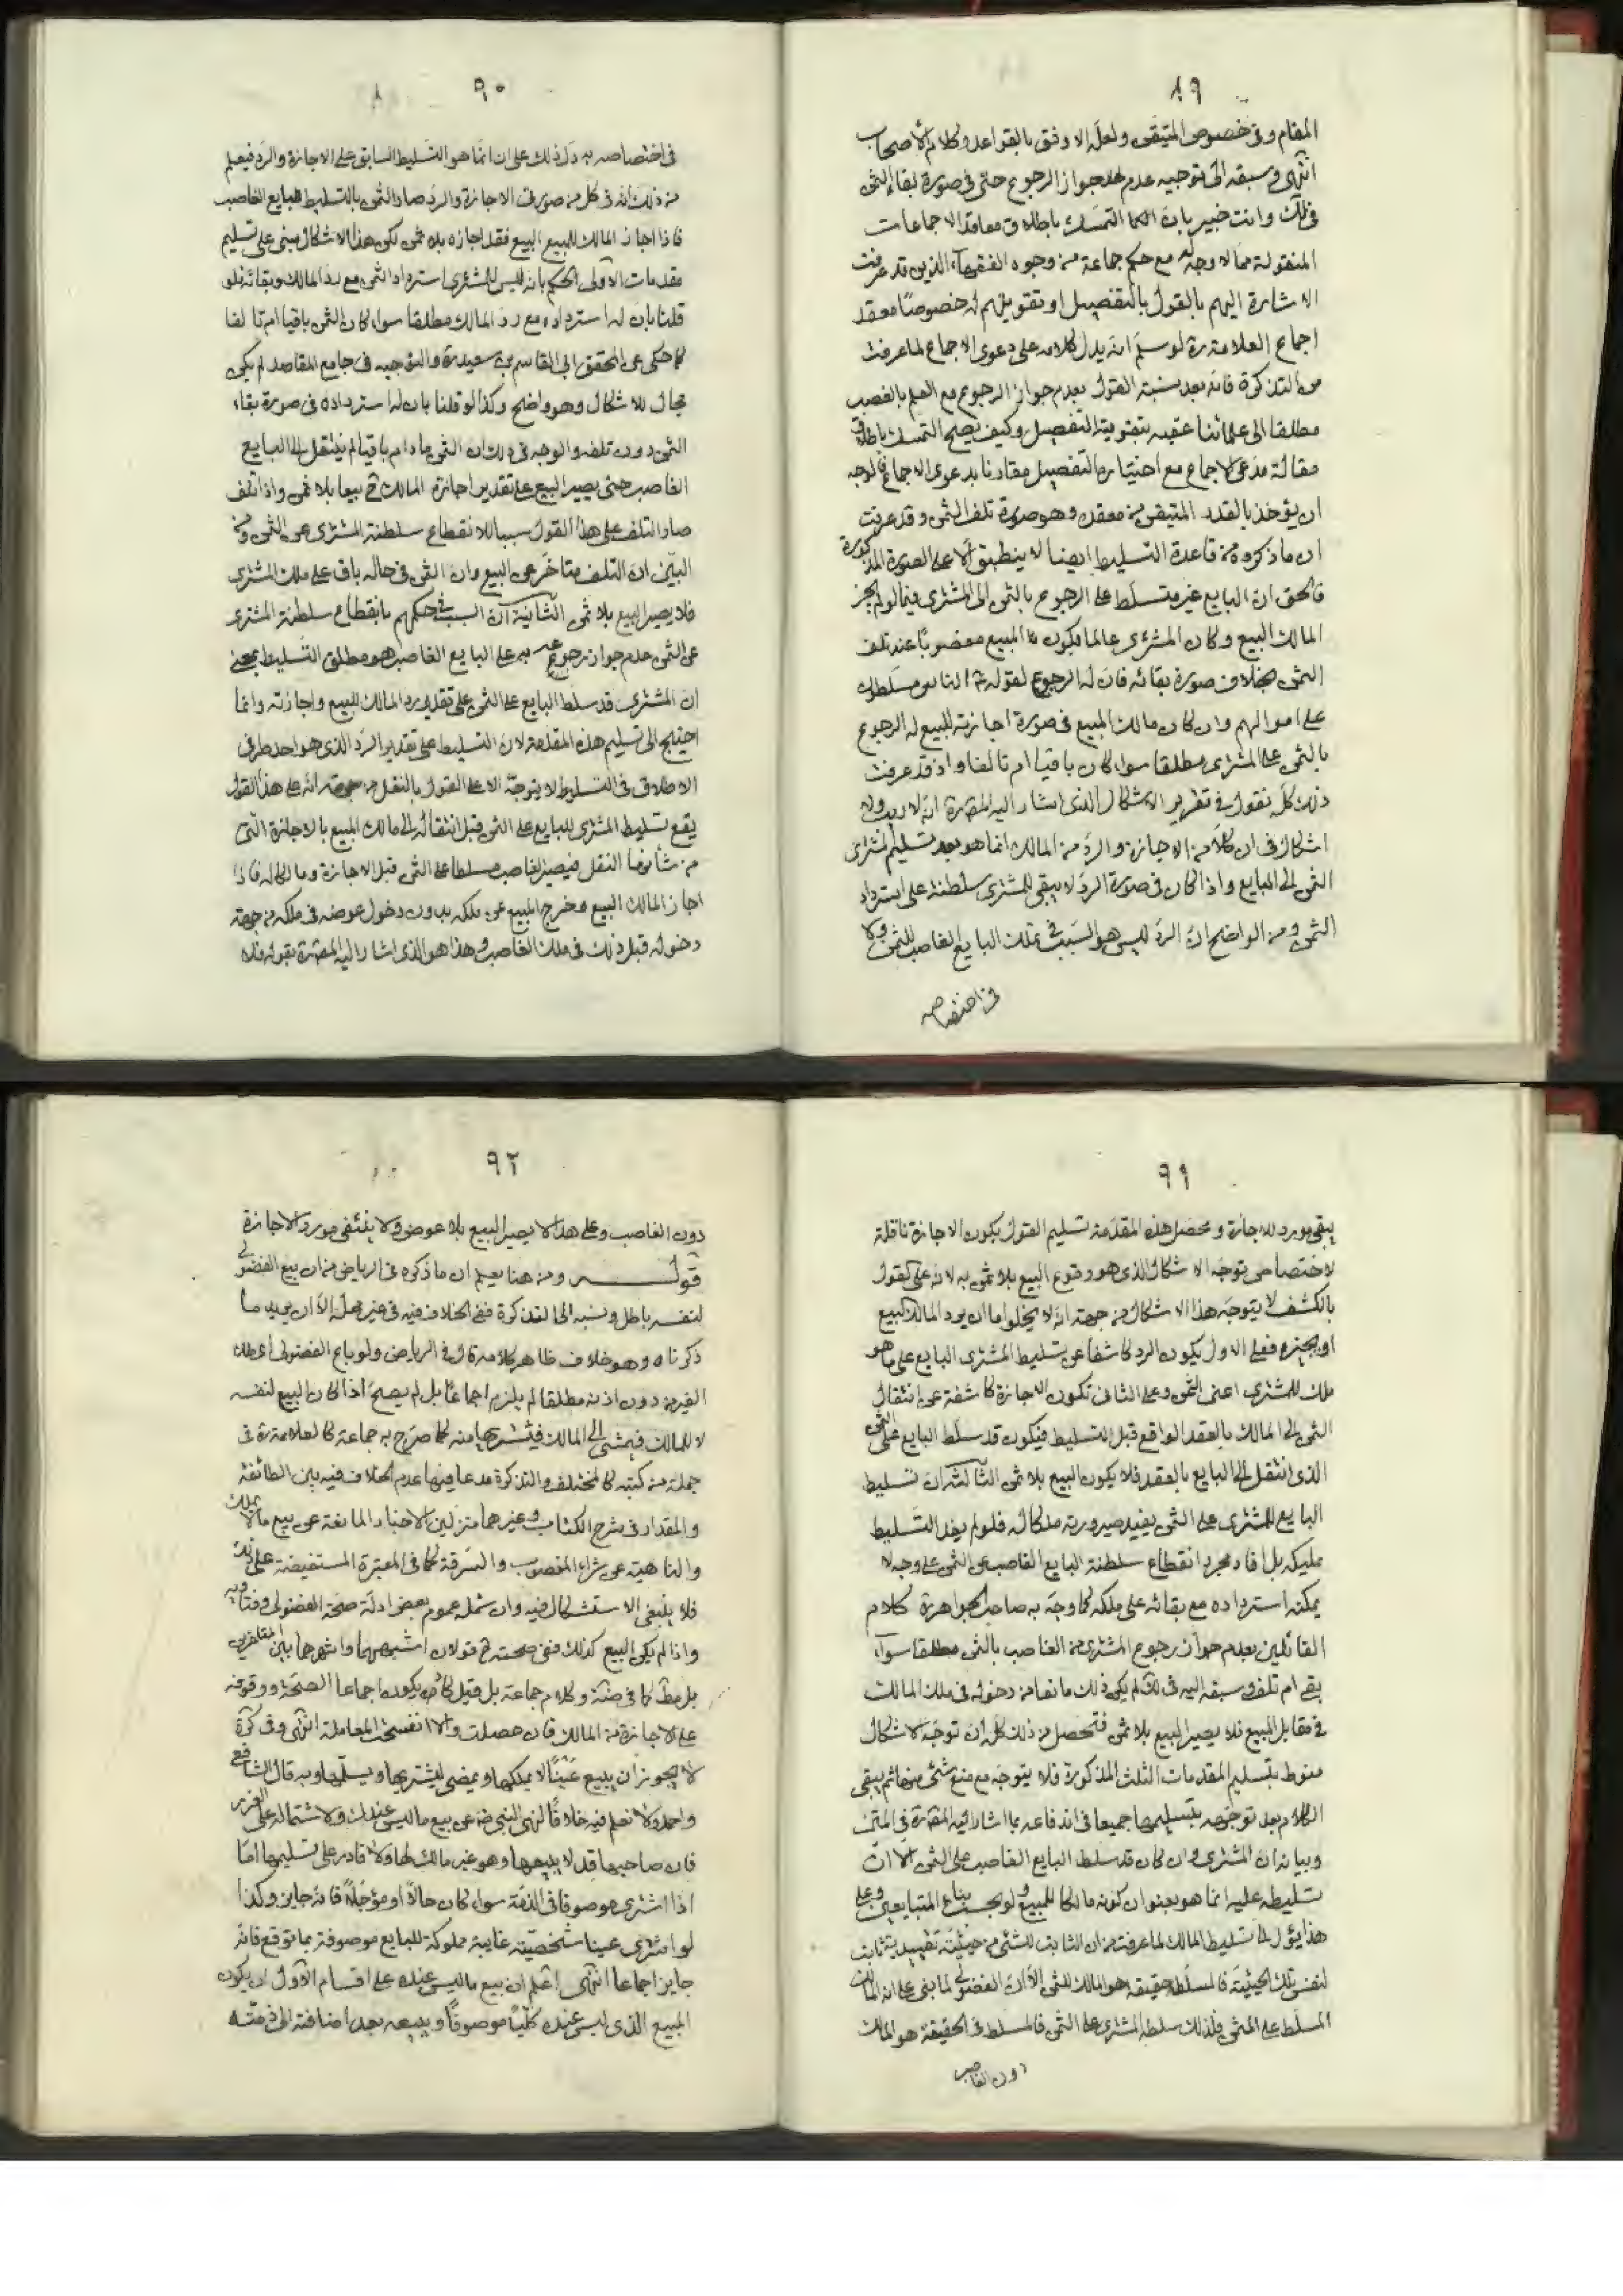 ٨٩
المقام وفي خصوص المتيقن ولعل الاوفق بالقواعد وكلام الأصحاب
انتهى وسبقه الى توجيه عدم جواز الرجوع حتى في صورة بقاء الثمن
في لك وانت خبير بان التمسك باطلاق معاقد الاجماعات
المنقولة مما لا وجه له مع حكم جماعة من وجوه الفقهاء الذين قد عرفت
الاشارة اليهم بالقول بالتفصيل او تقويتهم له خصوصًا معقد
اجماع العلامة ره لو سلم انه يدل كلامه على دعوى الاجماع لما عرفت
من التذكرة فانه بعد نسبة القول بعدم جواز الرجوع مع العلم بالغصب
مطلقا الى علمائنا عقبه بتقوية التفصيل وكيف يصح التمسك باطلاق
مقالة مدعى الاجماع مع اختياره التفصيل مقارنا بدعوى الاجماع فالوجه
ان يؤخذ بالقدر المتيقن من معقده وهو صورة تلف الثمن وقد عرفت
ان ما ذكروه من قاعدة التسليط ايضا لا ينطبق الا على الصورة المذكورة
فالحق ان البايع غير متسلط على الرجوع بالثمن الى المشترى فيما لو لم يجز
المالك البيع وكان المشترى عالما بكون المبيع مغصوبًا عند تلف
الثمن بخلاف صورة بقائه فان له الرجوع لقوله ع الناس مسلطون
على اموالهم وان كان مالك المبيع في صورة اجازته للبيع له الرجوع
بالثمن على المشترى مطلقا سواء كان باقيا ام تالفا واذ قد عرفت
ذلك كله نقول في تقرير الاشكال الذى اشار اليه المص ره انه لا ريب ولا
اشكال في ان كلاً من الاجازة والرد من المالك انما هو بعد تسليم المشترى
الثمن الى البايع واذا كان في صورة الرد لا يبقى للمشترى سلطنة على استرداد
الثمن ومن الواضح ان الرد ليس هو السبب في تملك البايع الغاصب للثمن ولا
في اختصاصه
٩٠
في اختصاصه به دل ذلك على ان انما هو التسليط السابق على الاجازة والرد فيعلم
من ذلك انه في كل من صورتى الاجازة والرد صار الثمن بالتسليط للبايع الغاصب
فاذا اجاز المالك للبيع البيع فقد اجازه بلا ثمن لكن هذا الاشكال مبنى على تسليم
مقدمات الاولى الحكم بانه ليس للمشترى استرداد الثمن مع رد المالك وبقائه فلو
قلنا بان له استرداده مع رد المالك مطلقا سواء كان الثمن باقيا ام تالفا
كما حكى عن المحقق ابى القاسم بن سعيد ره والتوجيه في جامع المقاصد لم يكن
مجال للاشكال وهو واضح وكذا لو قلنا بان له استرداده في صورة بقاء
الثمن دون تلفه والوجه في ذلك ان الثمن ما دام باقيا لم ينتقل الى البايع
الغاصب حتى يصير البيع على تقدير اجازة المالك ح بيعا بلا ثمن واذا تلف
صار التلف على هذا القول سببا لانقطاع سلطنة المشترى عن الثمن ومن
البين ان التلف متاخر عن البيع وان الثمن في حاله باق على ملك المشترى
فلا يصير البيع بلا ثمن الثانية ان السبب في حكمهم بانقطاع سلطنة المشترى
عن الثمن عدم جواز رجوعه به على البايع الغاصب هو مطلق التسليط بمعنى
ان المشترى قد سلط البايع على الثمن على تقديرى رد المالك للبيع واجازته وانما
احتيج الى تسليم هذه المقدمة لان التسليط على تقدير الرد الذى هو احد طرفى
الاطلاق في التسليط لا يتوجه الا على القول بالنقل من جهة انه على هذا القول
يقع تسليط المشترى للبايع على الثمن قبل انتقاله الى مالك المبيع بالاجازة التى
من شأنها النقل فيصير الغاصب مسلطا على الثمن قبل الاجازة ومالكا له فاذا
اجاز المالك البيع وخرج المبيع عن ملكه بدون دخول عوضه في ملكه من جهة
دخوله قبل ذلك في ملك الغاصب وهذا هو الذى اشار اليه المص ره بقوله فلا
٩١
يبقى مورد للاجازة ومحصل هذه المقدمة تسليم القول بكون الاجازة ناقلة
لاختصاص توجه الاشكال الذى هو وقوع البيع بلا ثمن به لانه على القول
بالكشف لا يتوجه هذا الاشكال من جهة انه لا يخلو اما ان يرد المالك البيع
او يجيزه فعلى الاول يكون الرد كاشفا عن تسليط المشترى البايع على ما هو
ملك للمشترى اعنى الثمن وعلى الثانى تكون الاجازة كاشفة عن انتقال
الثمن الى المالك بالعقد الواقع قبل التسليط فيكون قد سلط البايع على الثمن
الذى انتقل الى البايع بالعقد فلا يكون البيع بلا ثمن الثالثة ان تسليط
البايع للمشترى على الثمن يفيد صيرورته ملكا له فلو لم يفد التسليط
تمليكه بل افاد مجرد انقطاع سلطنة البايع الغاصب عن الثمن على وجه لا
يمكنه استرداده مع بقائه على ملكه كما وجه به صاحب الجواهر ره كلام
القائلين بعدم جواز رجوع المشترى من الغاصب بالثمن مطلقا سواء
بقى ام تلف وسبقه اليه في لك لم يكن ذلك مانعا من دخوله في ملك المالك
في مقابل المبيع فلا يصير البيع بلا ثمن فتحصل من ذلك كله ان توجه الاشكال
منوط بتسليم المقدمات الثلث المذكورة فلا يتوجه مع منع شئ منها ثم يبقى
الكلام بعد توجهه بتسليمها جميعا في اندفاعه بما اشار اليه المص ره في المتن
وبيانه ان المشترى وان كان قد سلط البايع الغاصب على الثمن الا ان
تسليطه عليه انما هو بعنوان كونه مالكا للمبيع ولو بحسب بناء المتبايعين وعلى
هذا يؤل الى تسليط المالك لما عرفت من ان الثابت للشئ من حيثية تقييدية ثابت
لنفس تلك الحيثية فالمسلط حقيقة هو المالك للثمن الا ان الفضولى لما بنى على انه المالك
المسلط على المثمن فلذلك سلطه المشترى على الثمن فالمسلط في الحقيقة هو المالك
دون الغاصب
٩٢
دون الغاصب وعلى هذا لا يصير البيع بلا عوض ولا ينتفى مورد الاجازة
قوله ومن هنا يعلم ان ما ذكره في الرياض من ان بيع الفضولى
لنفسه باطل ونسبه الى التذكرة نفى الخلاف فيه في غير محله الا ان يريد ما
ذكرناه وهو خلاف ظاهر كلامه قال في الرياض ولو باع الفضولى او ملك
الغير من دون اذنه مطلقا لم يلزم اجماعًا بل لم يصح اذا كان البيع لنفسه
لا للمالك فيمشى الى المالك فيشتريها منه كما صرح به جماعة كالعلامة ره في
جملة من كتبه كالمختلف والتذكرة مدعيا فيها عدم الخلاف فيه بين الطائفة
والمقداد في شرح الكتاب وغيرهما منزلين الاخبار المانعة عن بيع ما لا يملك
والناهية عن شراء المغصوب والسرقة كما في المعتبرة المستفيضة على ذلك
فلا ينبغى الاستشكال فيه وان شمله عموم بعض ادلة صحة الفضولى وفتاويه
واذا لم يكن البيع كذلك ففى صحته ح قولان اشبههما واشهرهما بين المتاخرين
بل مطلقا كما في ضة وكلام جماعة بل قيل كاد ان يكون اجماعا الصحة ووقوفه
على الاجازة من المالك فان حصلت والا انفسخت المعاملة انتهى وفى كرة
لا يجوز ان يبيع عينًا لا يملكها ويمضى ليشتريها ويسلمها وبه قال الشافعى
واحمد ولا نعلم فيه خلافًا لنهى النبى ص عن بيع ما ليس عندك ولاشتماله على الغرر
فان صاحبها قد لا يبيعها وهو غير مالك لها ولا قادر على تسليمها امّا
اذا اشترى موصوفا في الذمة سواء كان حالاً او مؤجلاً فانه جايز وكذا
لو اشترى عينا شخصية غايبة مملوكة للبايع موصوفة بما توقع فانه
جايز اجماعا انتهى اعلم ان بيع ما ليس عنده على اقسام الاول ان يكون
المبيع الذى ليس عنده كليًا موصوفًا وبيعه بعد اضافته الى ذمته